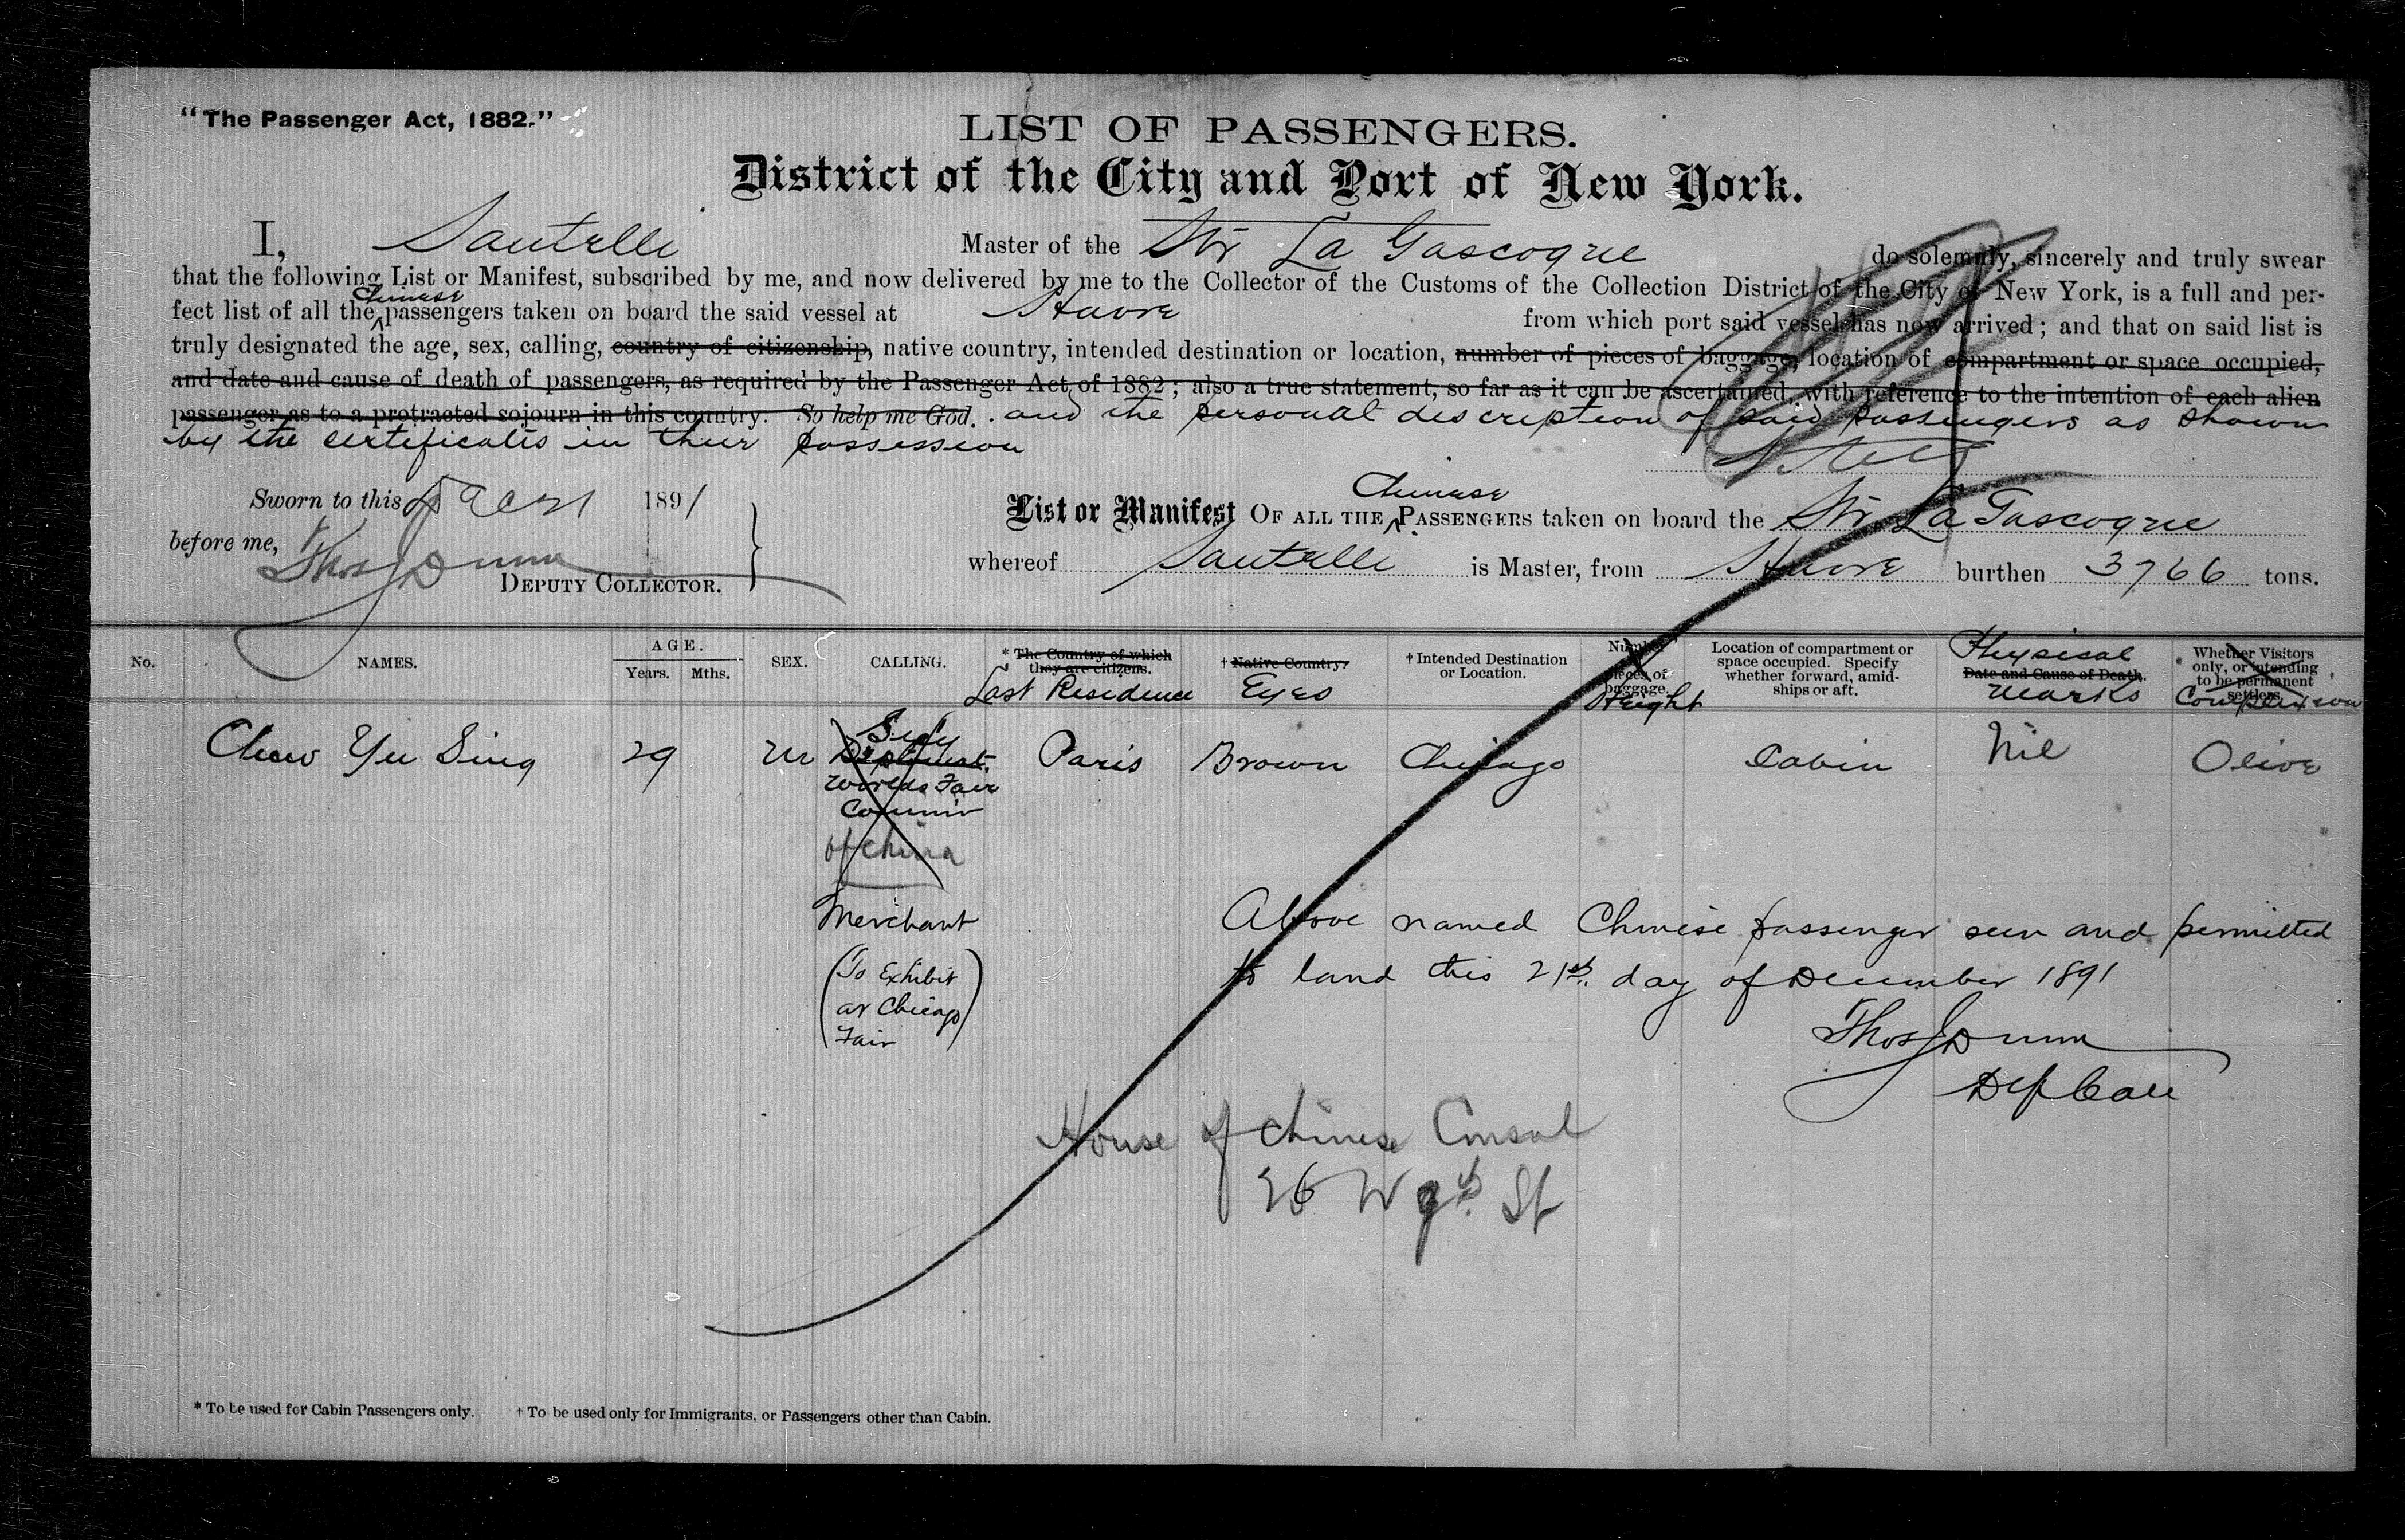 "The Passenger Act, 1882."
LIST OF PASSENGERS.
District of the City and Port of New York.
I, Santelli Master of the Str La Gascogne do solemnly, sincerely and truly swear
that the following List or Manifest, subscribed by me, and now delivered by me to the Collector of the Customs of the Collection District of the City of New York, is a full and per-
fect list of all the Chinese passengers taken on board the said vessel at Havre from which port said vessel has now arrived; and that on said list is
truly designated the age, sex, calling, country of citizenship, native country, intended destination or location, number of pieces of baggage, location of compartment or space occupied,
and date and cause of death of passengers, as required by the Passenger Act, of 1882; also a true statement, so far as it can be ascertained, with reference to the intention of each alien
passenger as to a protracted sojourn in this country. So help me God. and the personal description of said passengers as shown
by the certificates in their possession
Sworn to this 21 1891
before me,
Thos J Dunn
DEPUTY COLLECTOR.
List or Manifest OF ALL THE Chinese PASSENGERS taken on board the Str La Gascogne
whereof Santelli is Master, from Havre burthen 3766 tons.
No.
NAMES.
AGE.
Years. Mths.
SEX.
CALLING.
* The Country of which
they are citizens.
Last Residence
† Native Country.
Eyes
† Intended Destination
or Location.
Number
pieces of
baggage.
Height
Location of compartment or
space occupied. Specify
whether forward, amid-
ships or aft.
Physical
Date and Cause of Death.
Marks
Whether Visitors
only, or intending
to be permanent
settlers.
Complexion
Chew Yu Sing 29 M Paris Brown Chicago Cabin Nil Olive
Secy
Worlds Fair
Commir
of China
Merchant
(To Exhibit
at Chicago
Fair)
Above named Chinese passenger seen and permitted
to land this 21st. day of December 1891
Thos J Dunn
Dep Coll
House of Chinese Consul
26 W 9th St
* To be used for Cabin Passengers only. † To be used only for Immigrants, or Passengers other than Cabin.